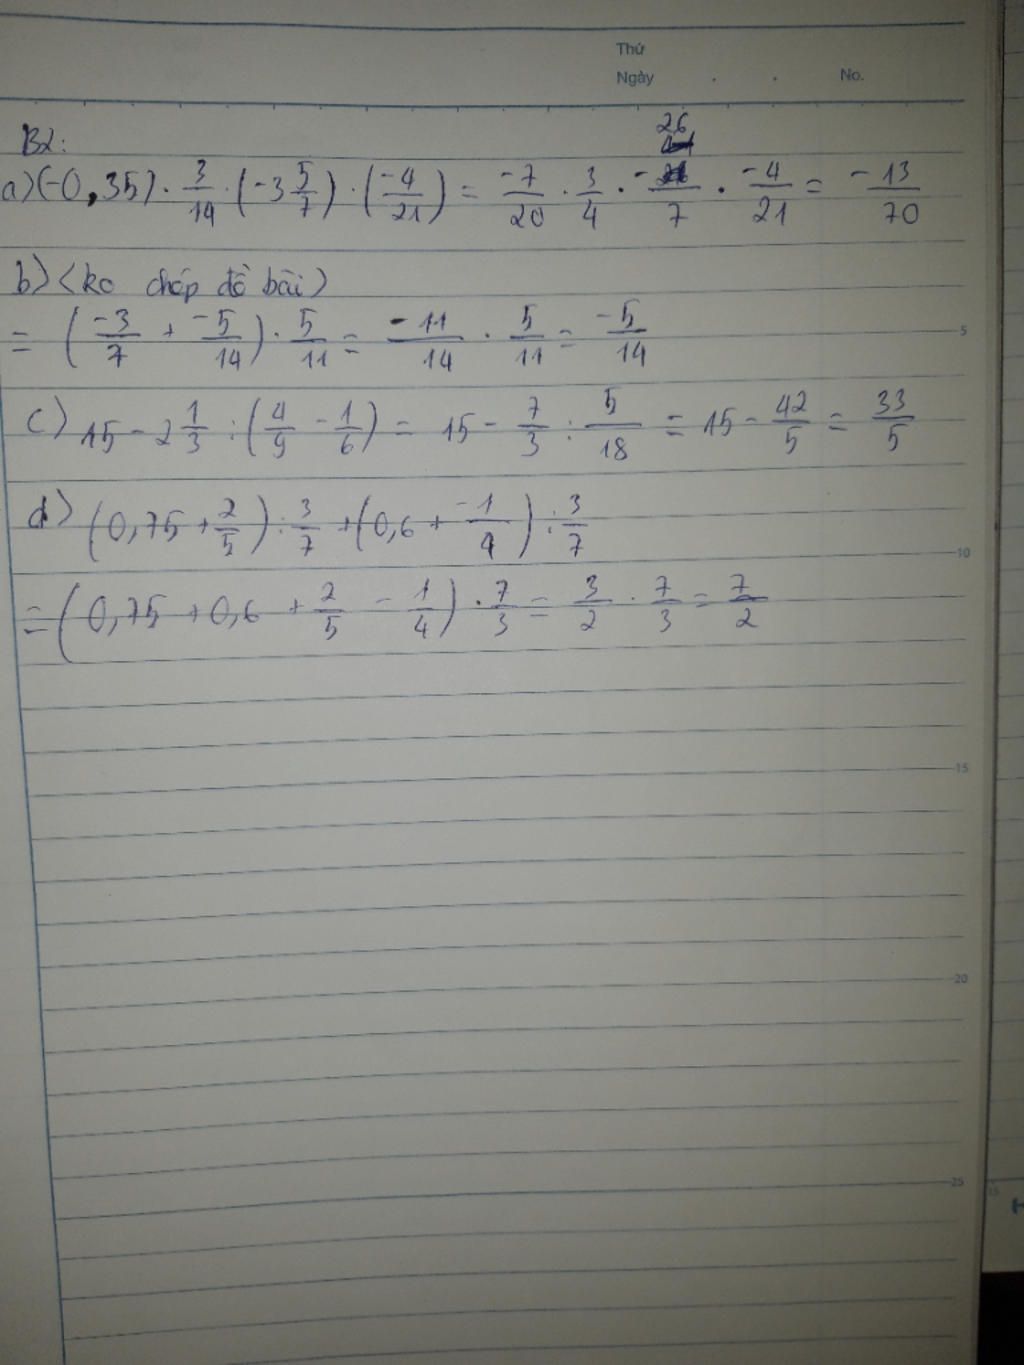 Thứ
Ngày . . No.
B2:
a) (-0,35) . 3/14 . (-3 5/7) . (-4/21) = -7/20 . 3/4 . -26/7 . -4/21 = -13/70
b) (ko chép đề bài)
= (-3/7 + -5/14) . 5/11 = -11/14 . 5/11 = -5/14
5
c) 15 - 2 1/3 : (4/9 - 1/6) = 15 - 7/3 : 5/18 = 15 - 42/5 = 33/5
d) (0,75 + 2/5) : 3/7 + (0,6 + -1/4) : 3/7
10
= (0,75 + 0,6 + 2/5 - 1/4) . 7/3 = 3/2 . 7/3 = 7/2
15
20
25